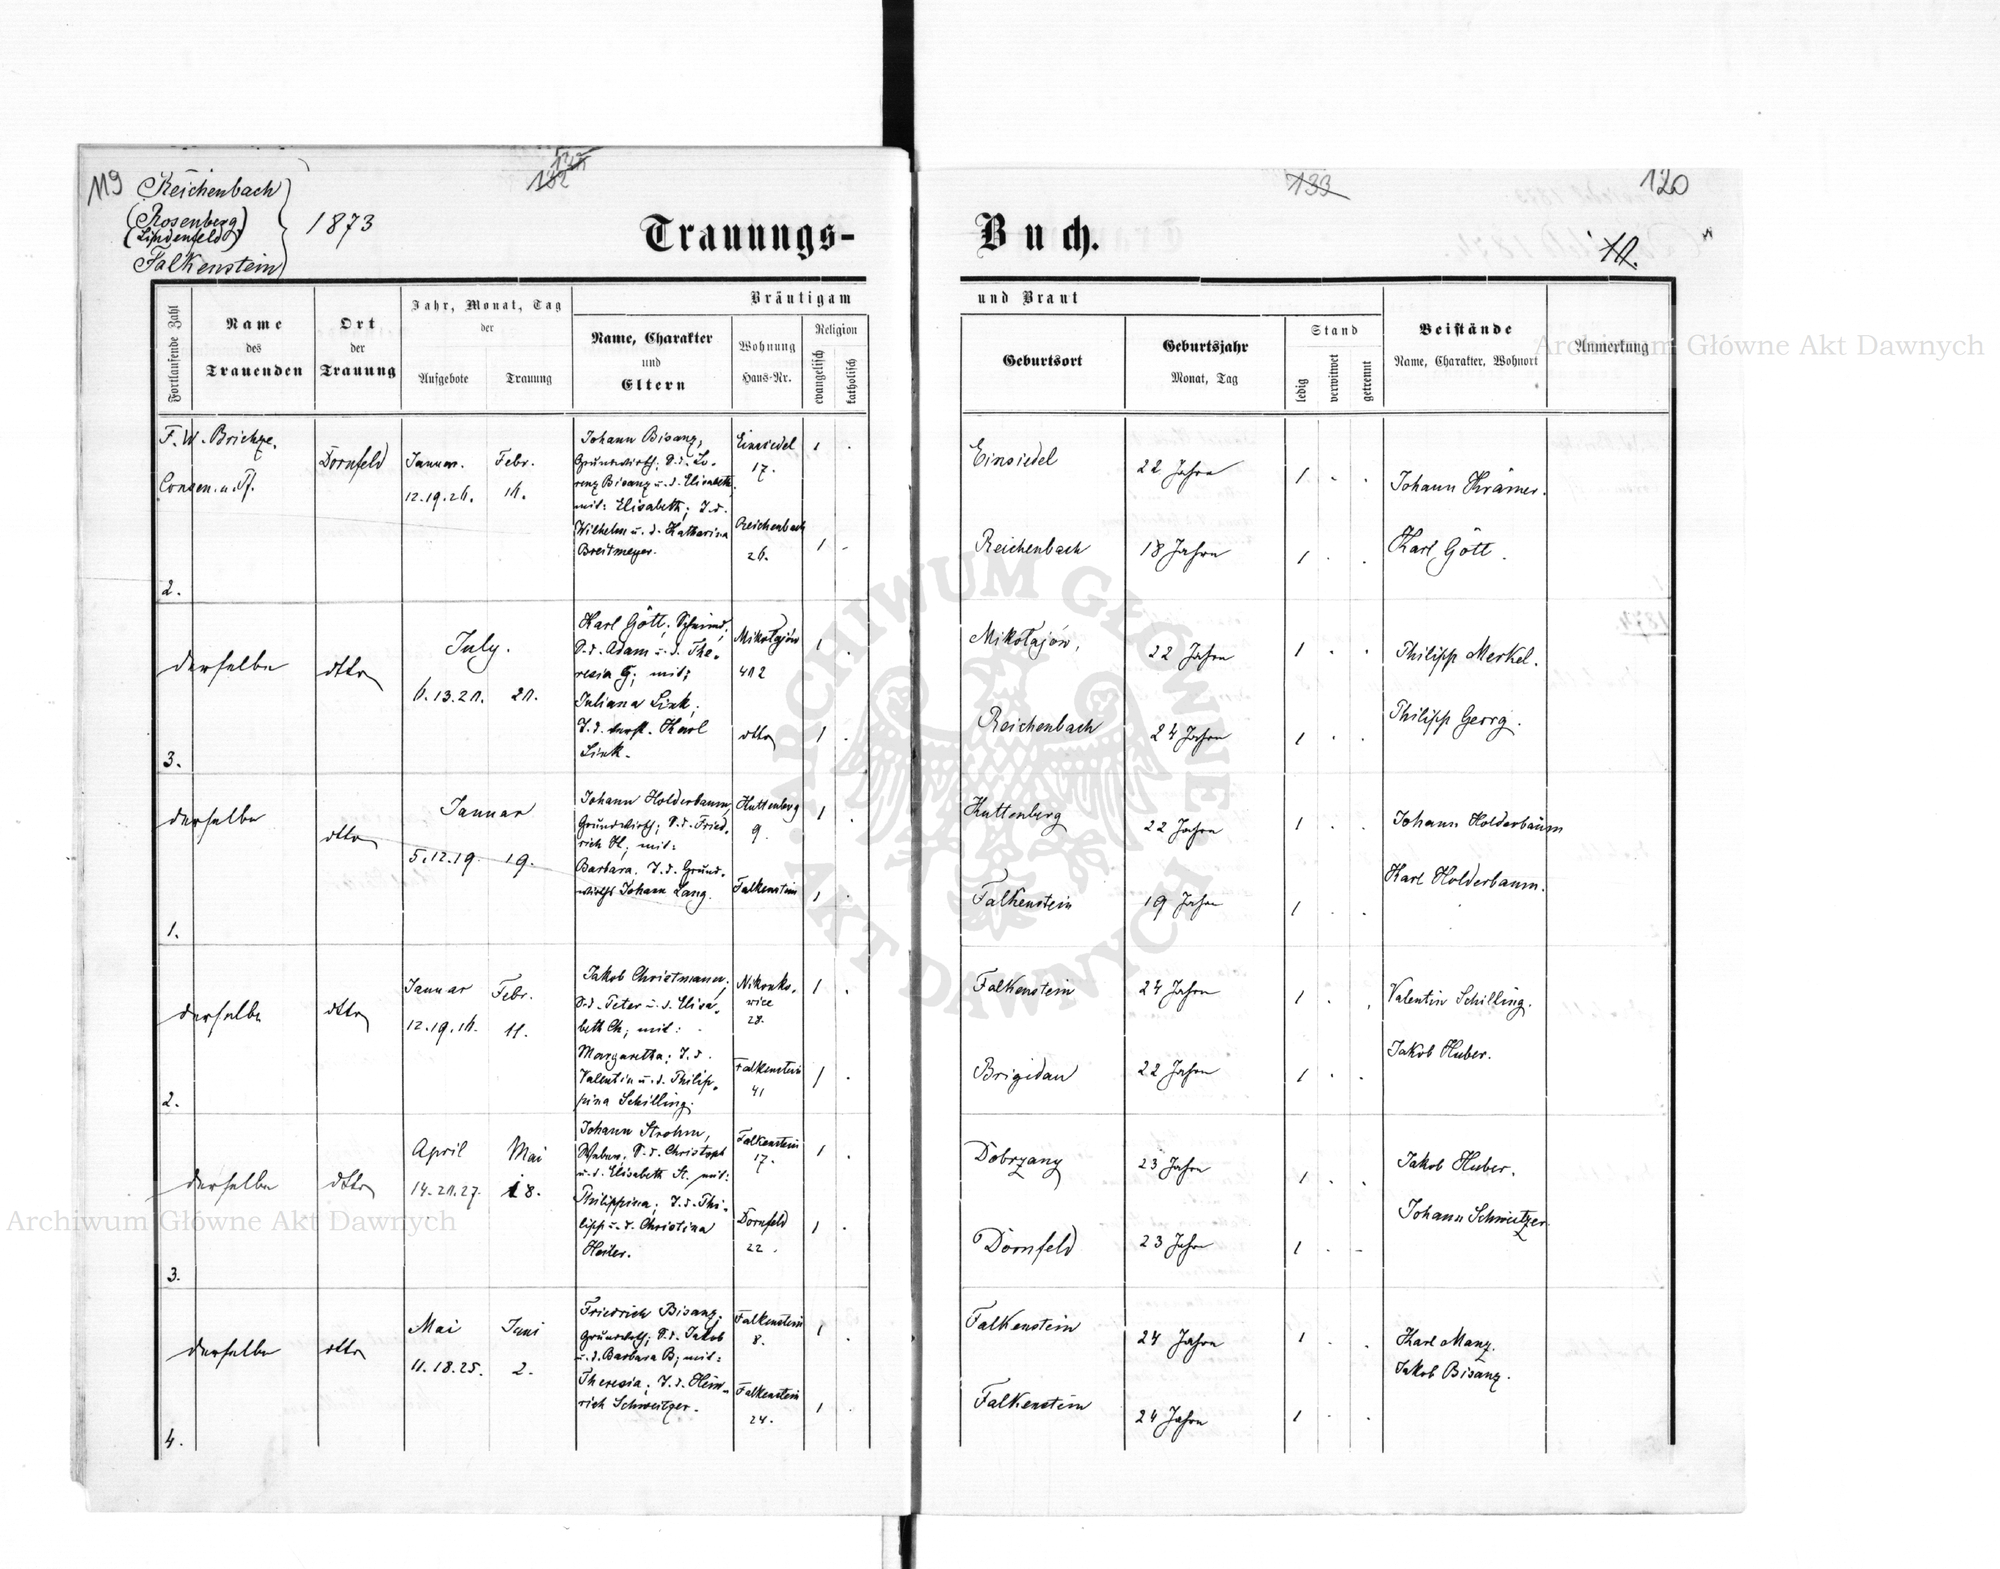 119
Reichenbach
(Rosenberg)
(Lindenfeld)
Falkenstein
1873
132
133
120
Trauungs-
Buch.
Fortlaufende Zahl
Name
des
Trauenden
Ort
der
Trauung
Jahr, Monat, Tag
der
Aufgebote
Trauung
Bräutigam
und Braut
Name, Charakter
und
Eltern
Wohnung
Haus-Nr.
Religion
evangelisch
katholisch
Geburtsort
Geburtsjahr
Monat, Tag
Stand
ledig
verwitwet
getrennt
Beistände
Name, Charakter, Wohnort
Anmerkung
2.
Dornfeld
Januar.
12. 19. 26.
Febr.
11.
Johann Bisanz,
Grundwirth; S. d. Lo-
renz Bisanz u. d. Elisabeth,
mit: Elisabeth; T. d.
Wilhelm u. d. Katharina
Breitmeyer.
Einsiedel
17.
Reichenbach
26.
1 .
1 .
Einsiedel
22 Jahre
1 . .
Reichenbach
18 Jahre
1 . .
Johann Krämer.
Karl Gött.
3.
derselbe
dtto
July.
6. 13. 20.
Karl Gött, Schmied,
S. d. Adam u. d. The-
resia G; mit:
Juliana Link;
Link.
Mikołajów
412
dtto
1 .
1 .
Mikołajów,
22 Jahre
1 . .
Reichenbach
24 Jahre
1 . .
Philipp Merkel.
Philipp Georg.
1.
derselbe
dtto
Januar
5. 12. 19.
19.
Johann Holderbaum,
Grundwirth; S. d. Fried-
rich H; mit:
Barbara. T. d. Grund-
wirths Johann Lang.
Huttenberg
9.
Falkenstein
1 .
1 .
Huttenberg
22 Jahre
1 . .
Falkenstein
19 Jahre
1 . .
Johann Holderbaum
Karl Holderbaum.
2.
derselbe
dtto
Januar
Febr.
11.
Jakob Christmann;
S. d. Peter u. d. Elisa-
beth Ch; mit:
Margaretha; T. d.
Valentin u. d. Philip-
pina Schilling.
Nikonko-
wice
28.
Falkenstein
41
1 .
1 .
Falkenstein
24 Jahre
1 . .
Brigidau
22 Jahre
1 . .
Valentin Schilling.
Jakob Huber.
3.
derselbe
dtto
April
14. 20. 27.
Mai
Johann Strohm,
Weber. S. d. Christoph
u. d. Elisabeth St. mit:
Philippina; T. d. Phi-
lipp u. d. Christina
Falkenstein
17.
Dornfeld
22.
1 .
1 .
Dobrzany
23 Jahre
1 . .
Dornfeld
23 Jahre
1 . .
Jakob Huber.
Johann Schweitzer.
4.
derselbe
dtto
Mai
11. 18. 25.
Juni
2.
Friedrich Bisanz,
Grundwirth; S. d. Jakob
u. d. Barbara B; mit:
Theresia; T. d. Hein-
rich Schweitzer.
Falkenstein
8.
Falkenstein
24.
1 .
1 .
Falkenstein
24 Jahre
1 . .
Falkenstein
24 Jahre
1 . .
Karl Manz.
Jakob Bisanz.
Archiwum Główne Akt Dawnych
Archiwum Główne Akt Dawnych
ARCHIWUM GŁÓWNE AKT DAWNYCH